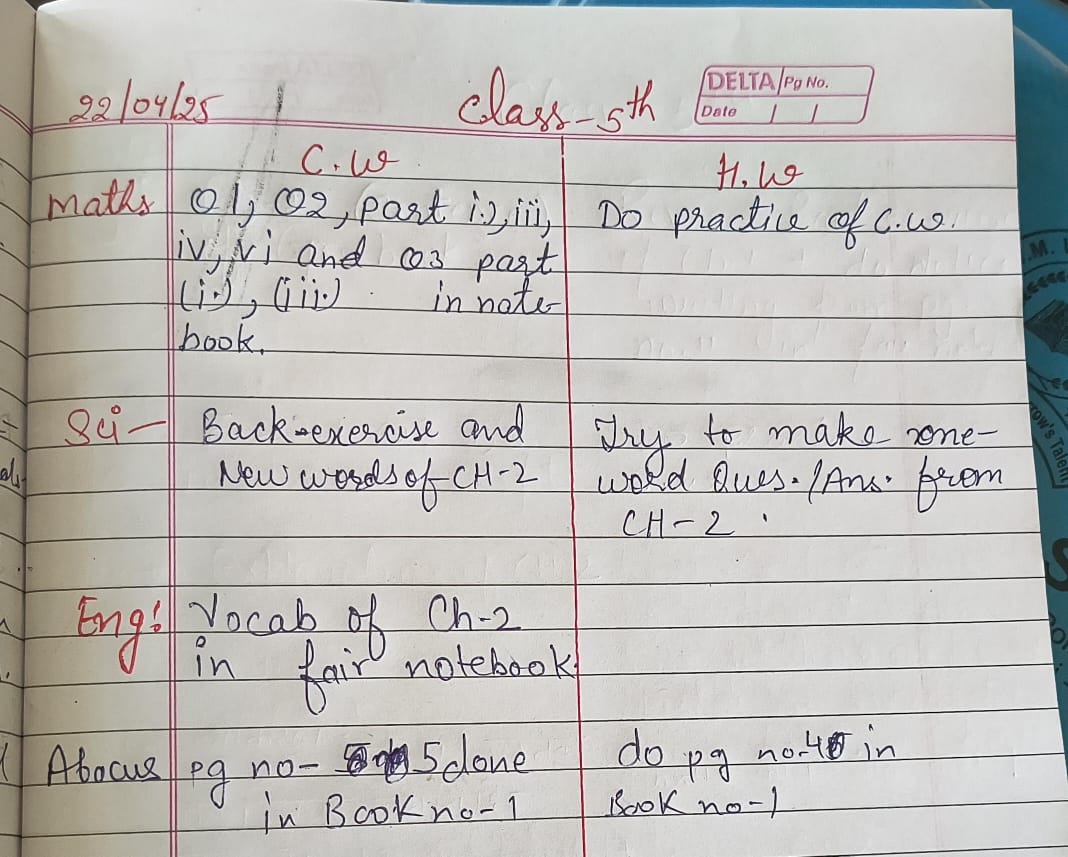 22/04/25
Class-5th
DELTA Pg No.
Date / /
C.W
H.W
Maths
Q1, Q2, part i.), iii,
iv, vi and Q3 part
(i.), (iii.) in note-
book.
Do practice of C.W.
Sci-
Back-exercise and
New words of CH-2
Try to make one-
word Ques./Ans. from
CH-2.
Eng:
Vocab of Ch-2
in fair notebook
Abacus
pg no- 5 done
in Book no-1
do pg no- in
Book no-1